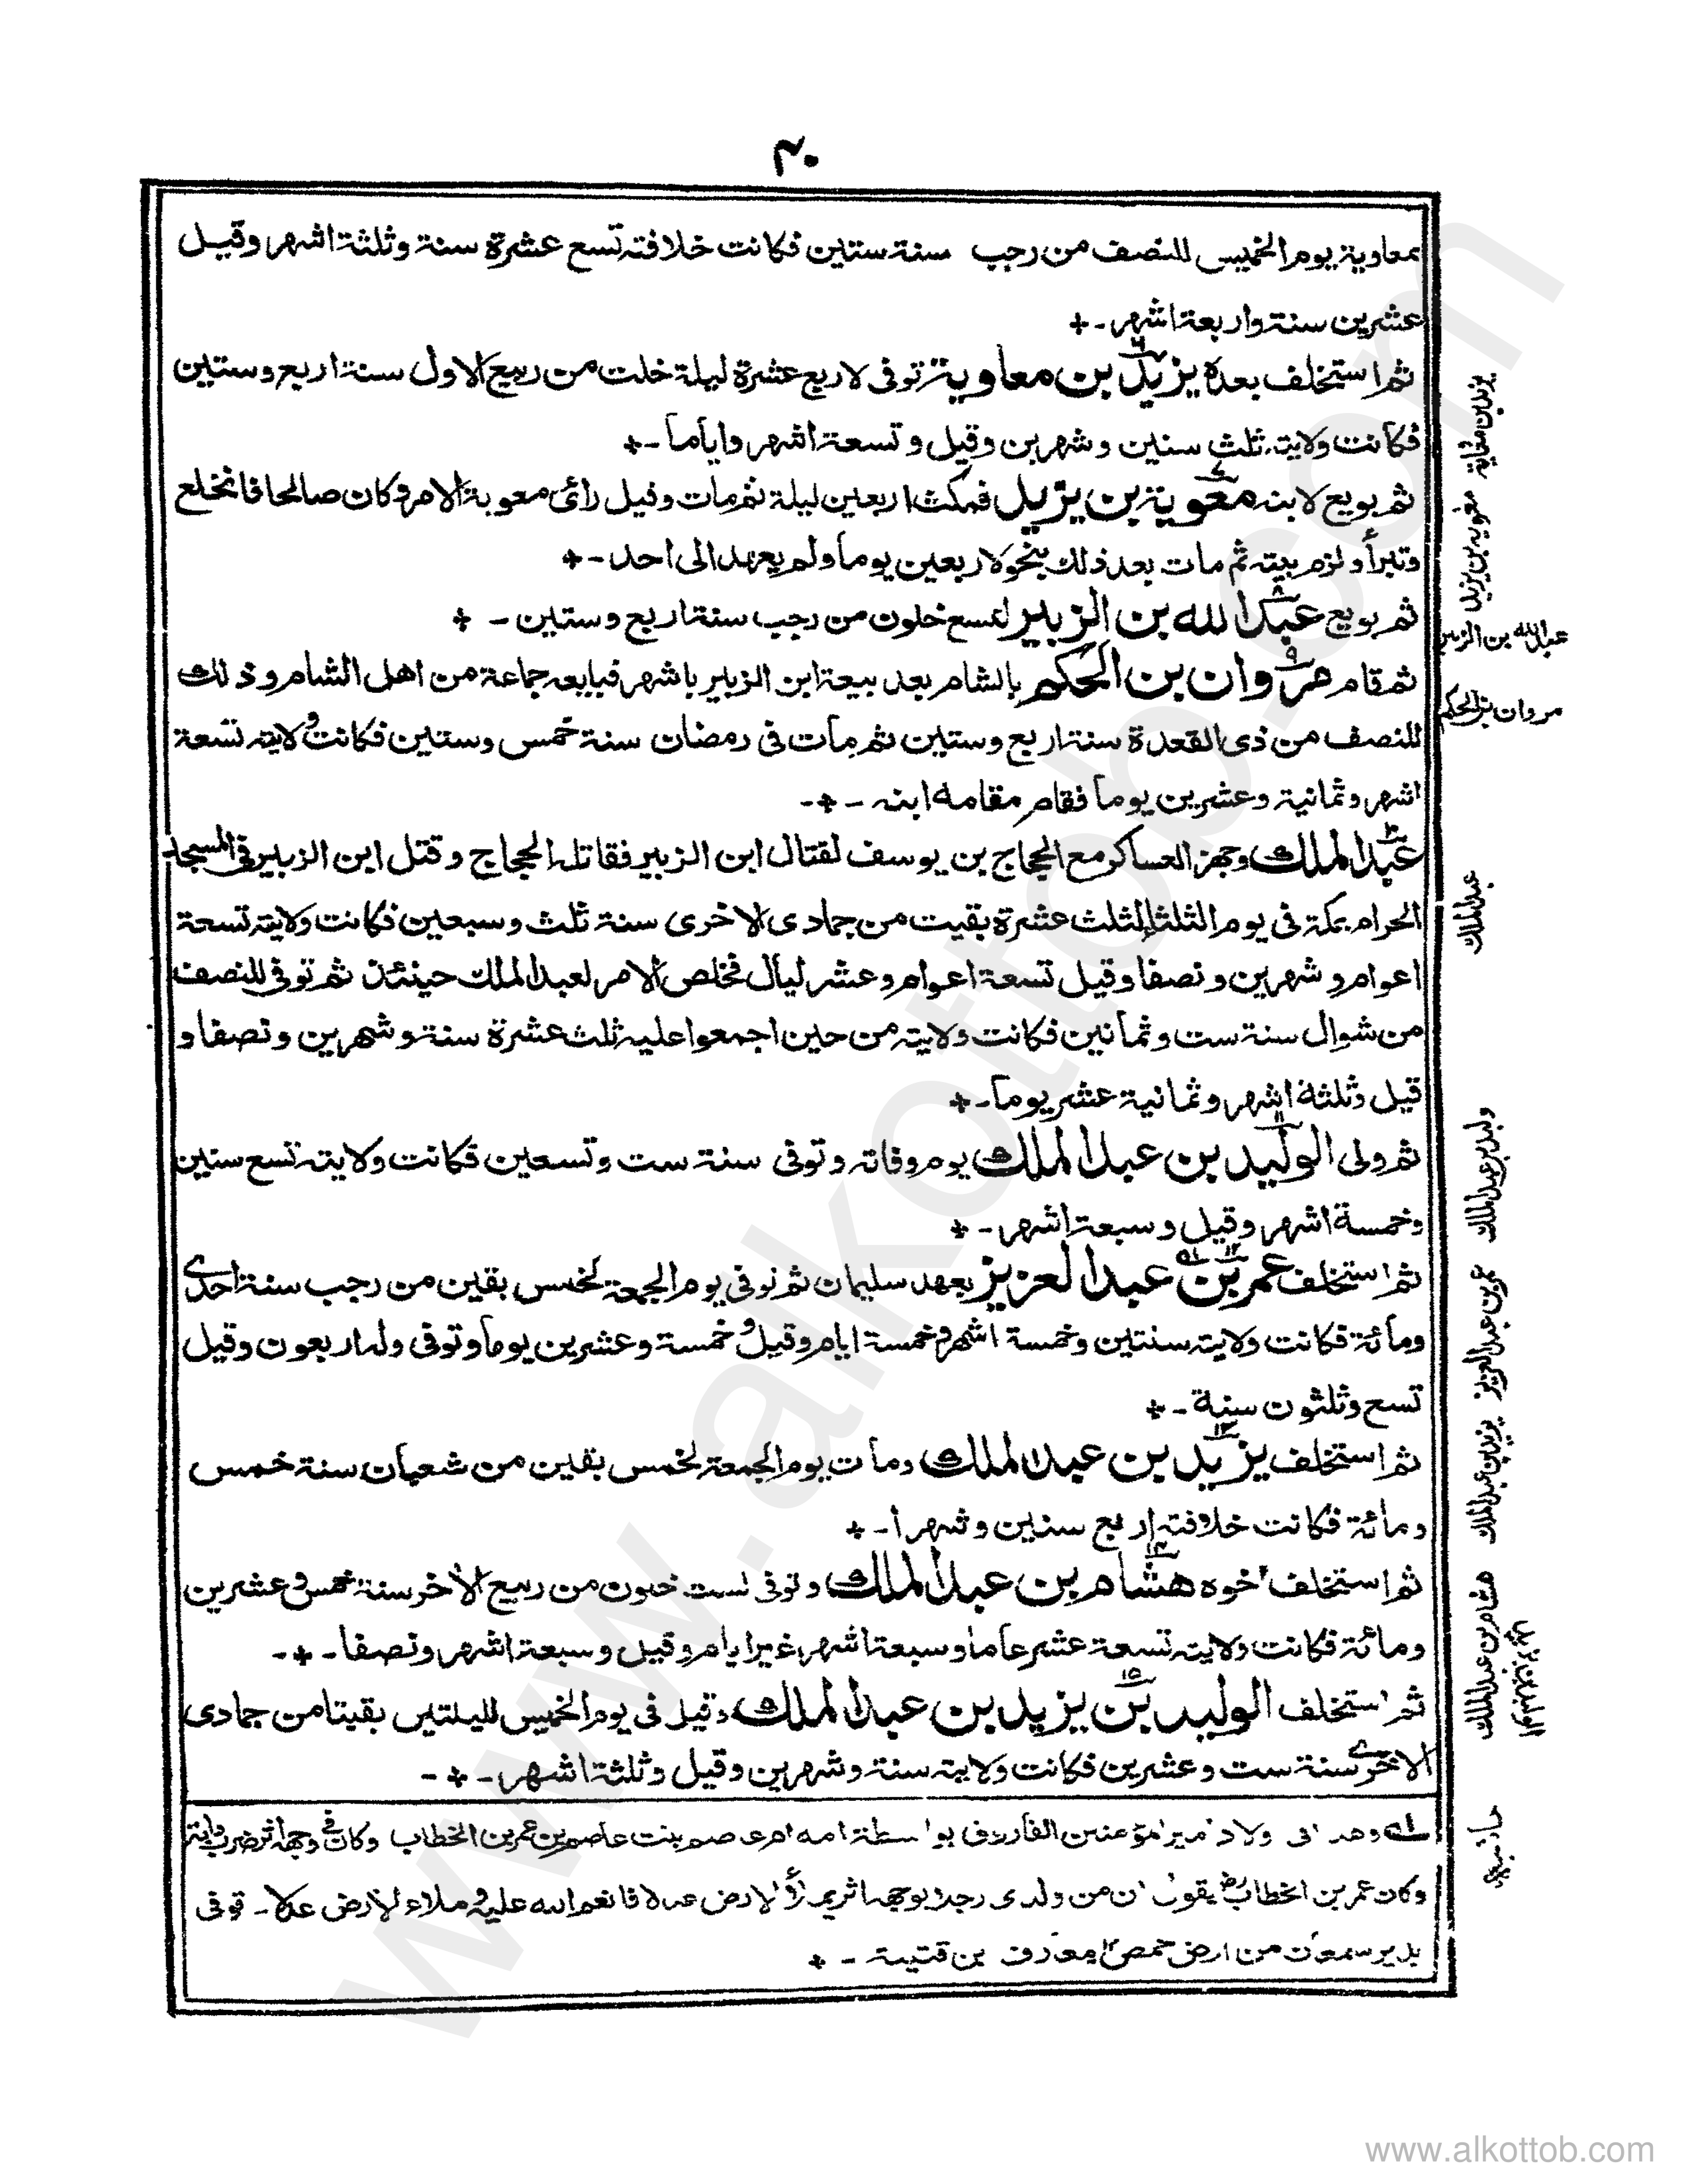 ۴۰
بمعاوية يوم الخميس للنصف من رجب سنة ستين فكانت خلافته تسع عشرة سنة وثلثة اشهر وقيل
عشرين سنة واربعة اشهر۔ +
ثم استخلف بعده يزيد بن معاوية توفى لاربع عشرة ليلة خلت من ربيع الاول سنة اربع وستين
فكانت ولايته ثلث سنين وشهرين وقيل وتسعة اشهر واياما۔ +
ثم بويع لابنه معوية بن يزيد فمكث اربعين ليلة ثم مات وقيل رأى معوية الامر وكان صالحا فانخلع
وتبرأ ولزم بيته ثم مات بعد ذلك بنحو لاربعين يوما ولم يعهد الى احد۔ +
ثم بويع عبد الله بن الزبير لتسع خلون من رجب سنة اربع وستين۔ +
ثم قام مروان بن الحكم بالشام بعد بيعة ابن الزبير باشهر فبايعه جماعة من اهل الشام وذلك
للنصف من ذى القعدة سنة اربع وستين ثم مات فى رمضان سنة خمس وستين فكانت ولايته تسعة
اشهر وثمانية وعشرين يوما فقام مقامه ابنه ۔ + ۔
عبد الملك وجهز العساكر مع الحجاج بن يوسف لقتال ابن الزبير فقاتله الحجاج وقتل ابن الزبير فى المسجد
الحرام بمكة فى يوم الثلثا لثلث عشرة بقيت من جمادى الاخرى سنة ثلث وسبعين فكانت ولايته تسعة
اعوام وشهرين ونصفا وقيل تسعة اعوام وعشر ليال فخلص الامر لعبد الملك حينئذ ثم توفى للنصف
من شوال سنة ست وثمانين فكانت ولايته من حين اجمعوا عليه ثلث عشرة سنة وشهرين ونصفا و
قيل وثلثة اشهر وثمانية عشر يوما۔ +
ثم ولى الوليد بن عبد الملك يوم وفاته وتوفى سنة ست وتسعين فكانت ولايته تسع سنين
وخمسة اشهر وقيل وسبعة اشهر۔ +
ثم استخلف عمر بن عبد العزيز بعهد سليمان ثم توفى يوم الجمعة لخمس بقين من رجب سنة احدى
ومائة فكانت ولايته سنتين وخمسة اشهر وخمسة ايام وقيل وخمسة وعشرين يوما وتوفى وله اربعون وقيل
تسع وثلثون سنة۔ +
ثم استخلف يزيد بن عبد الملك ومات يوم الجمعة لخمس بقين من شعبان سنة خمس
ومائة فكانت خلافته اربع سنين وشهرا۔ +
ثم استخلف اخوه هشام بن عبد الملك وتوفى لست خلون من ربيع الاخر سنة خمس وعشرين
ومائة فكانت ولايته تسعة عشر عاما وسبعة اشهر غير ايام وقيل وسبعة اشهر ونصفا۔ + ۔
ثم استخلف الوليد بن يزيد بن عبد الملك وقيل فى يوم الخميس لليلتين بقيتا من جمادى
الاخرى سنة ست وعشرين فكانت ولايته سنة وشهرين وقيل وثلثة اشهر۔ + ۔
بواسطة امه ام عاصم بنت عاصم بن عمر بن الخطاب وكان فى وجهه اثر ضرب دابة
وكان عمر بن الخطاب يقول ان من ولدى رجلا بوجهه اثر يملأ الارض عدلا فانعم الله عليه وملاء الارض عدلا۔ توفى
بدير سمعان من ارض حمص معارف بن قتيبة ۔ +
يزيد بن معاوية
معوية بن يزيد
عبد الله بن الزبير
مروان بن الحكم
عبد الملك
وليد بن عبد الملك
عمر بن عبد العزيز
يزيد بن عبد الملك
هشام بن عبد الملك
www.alkottob.com
www.alkottob.com